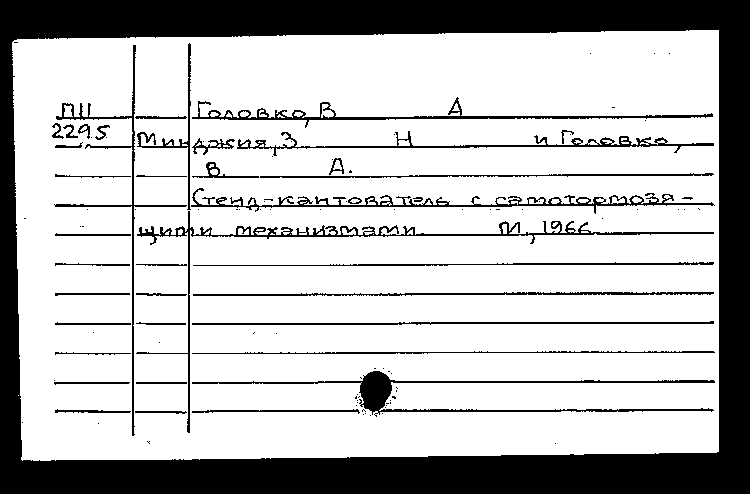 ПII Головко, В А
2295 Минджия, З Н и Головко,
В. А.
Стенд-кантователь с самотормозя-
щими механизмами. М., 1966